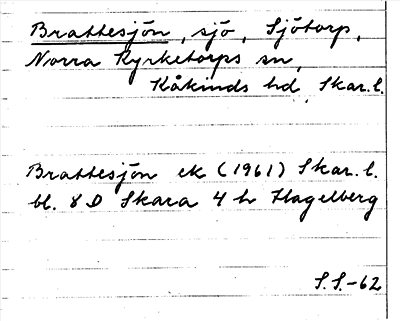 Brattesjön, sjö, Sjötorp,
Norra Kyrketorps sn,
Kåkinds hd, Skar. l.
Brattesjön ek (1961) Skar. l.
bl. 8 D Skara 4 h Hagelberg
S.S.-62